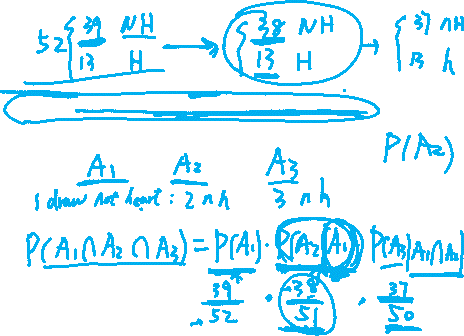 52 { 39 NH → { 38 NH → { 37 nH
13 H 13 H 13 h
P(A₂)
A₁ A₂ A₃
1 draw not heart : 2 n h 3 n h
P(A₁∩A₂∩A₃) = P(A₁) · P(A₂|A₁) P(A₃|A₁∩A₂)
39/52 · 38/51 · 37/50